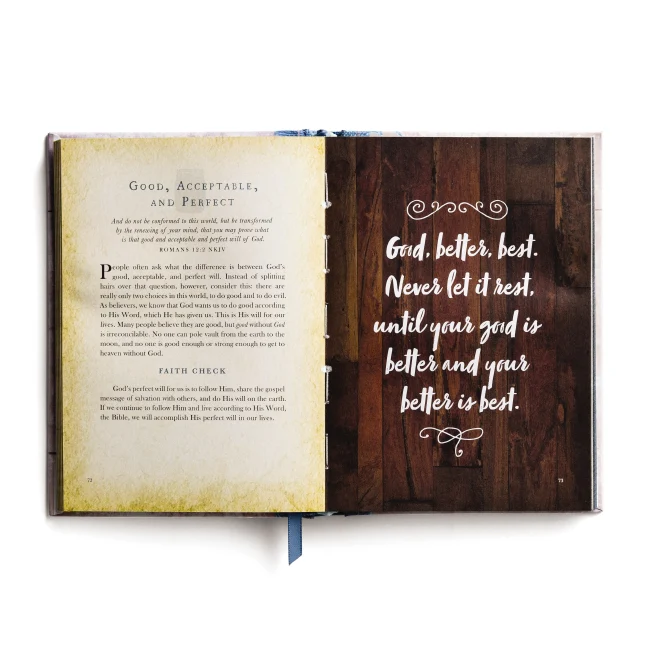 GOOD, ACCEPTABLE,
AND PERFECT
And do not be conformed to this world, but be transformed
by the renewing of your mind, that you may prove what
is that good and acceptable and perfect will of God.
ROMANS 12:2 NKJV
People often ask what the difference is between God's
good, acceptable, and perfect will. Instead of splitting
hairs over that question, however, consider this: there are
really only two choices in this world, to do good and to do evil.
As believers, we know that God wants us to do good according
to His Word, which He has given us. This is His will for our
lives. Many people believe they are good, but good without God
is irreconcilable. No one can pole vault from the earth to the
moon, and no one is good enough or strong enough to get to
heaven without God.
FAITH CHECK
God's perfect will for us is to follow Him, share the gospel
message of salvation with others, and do His will on the earth.
If we continue to follow Him and live according to His Word,
the Bible, we will accomplish His perfect will in our lives.
72
Good, better, best.
Never let it rest,
until your good is
better and your
better is best.
73